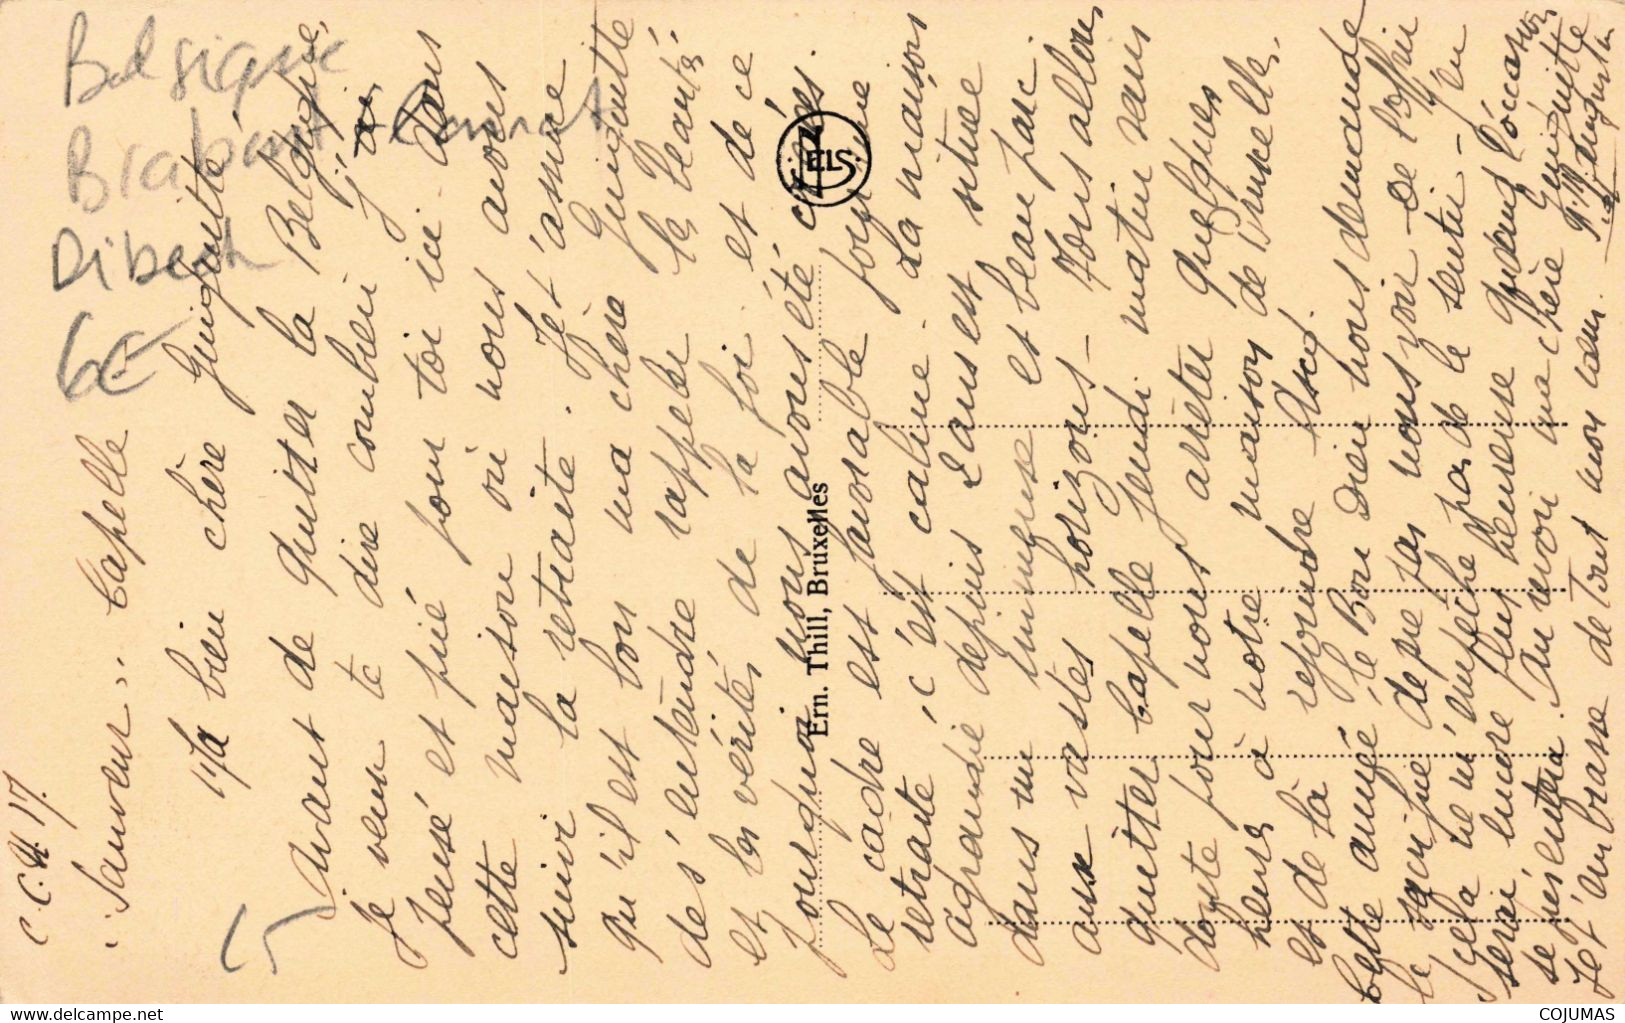 Belgique
Brabant
Dibech
6€
C.C. 17.
Sauveur.. Capelle
Ma bien chère Guiguitte
Avant de quitter la Belgique,
Je veux te dire combien j'ai
pensé et prié pour toi ici. Dans
cette maison où nous avons
suivi la retraite. Je t'assure
qu'il est bon ma chère Guiguitte
de s'entendre rappeler la beauté
et les vérités de la foi et de ce
pourquoi nous avons été créés.
Le cadre est favorable
retraite, c'est calme. La maison
agrandie depuis 2 ans est située
dans un immense et beau parc
aux vastes horizons. Nous allons
quitter Capelle Jeudi matin sans
doute pour nous arrêter quelques
heures à notre maison de Bruxelles.
et de là rejoindre Ascq.
cette année, le Bon Dieu nous demande
le sacrifice de ne pas nous voir
cela ne m'empêche pas de le sentir
serai encore plus heureuse quand l'occasion
se présentera. Au revoir ma chère Guiguitte
Je t'embrasse de tout mon cœur.
ELS.
Ern. Thill, Bruxelles
delcampe.net
COJUMAS